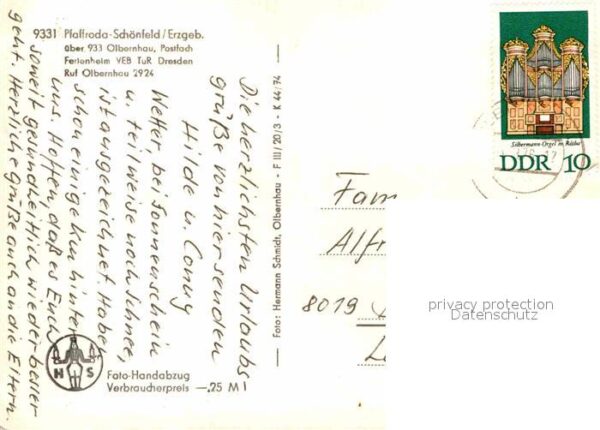 9331 Pfaffroda-Schönfeld/Erzgeb.
über 933 Olbernhau, Postfach
Ferienheim VEB TuR Dresden
Ruf Olbernhau 2924
Die herzlichsten Urlaubs
grüße von hier senden
Hilde u. Conny
Wetter, bei Sonnenschein
u. teilweise noch Schnee,
ist ausgezeichnet. Haben
schon einige km hinter
uns. Hoffen, daß es Euch
soweit gesundheitlich wieder besser
geht. Herzliche Grüße auch an die Eltern.
H S
Foto-Handabzug
Verbraucherpreis —,25 M 1
Foto: Hermann Schmidt, Olbernhau - F III/20/3 - K 44/74
Silbermann-Orgel in Rötha
DDR 10
Fam
Alfr
8019
privacy protection
Datenschutz